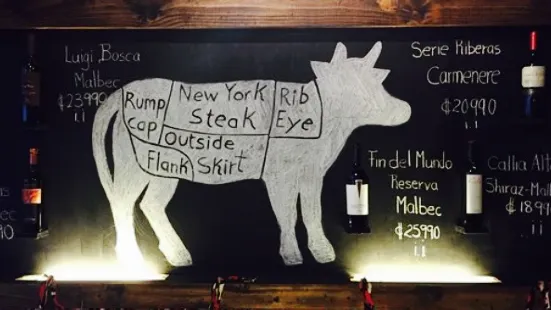 Luigi Bosca
Malbec
₡23990
Rump
cap
New York
Steak
Rib
Eye
Outside
Skirt
Flank
Serie Riberas
Carmenere
₡20990
Fin del Mundo
Reserva
Malbec
₡25990
Callia Alt
Shiraz-Malb
₡1899